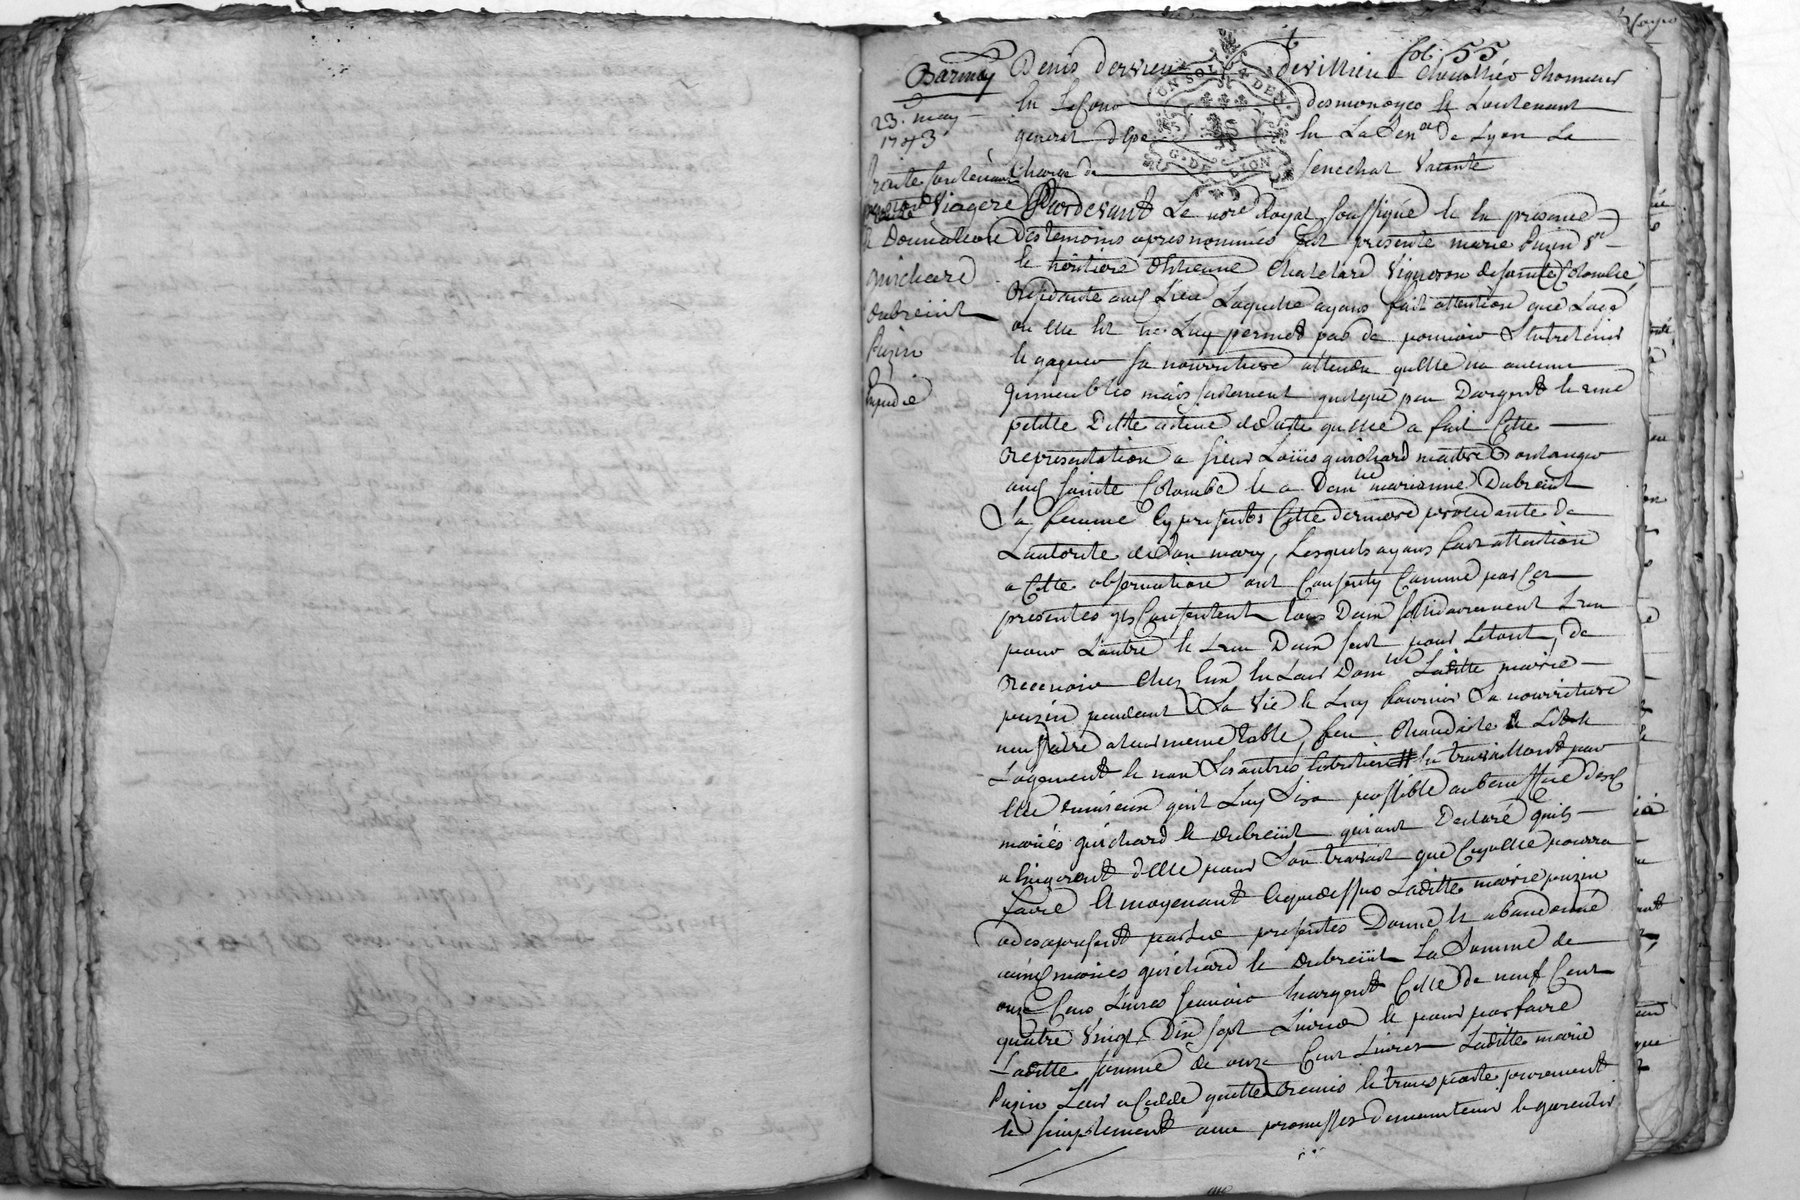 Barmay
23. may
1743
traité contenant
pension viagere
& Donnation
guichard
dubreüit
Puzin
Expedié
fol. 55
UN SOL 4 DEN.
G. DE LION
Denis Dervieu devillieu Chevallier dhonneur
En La Cour desmonoyes Et Lieutenant
general dEpée En La Senée. de Lyon La
Charge de Senechal Vacante
Pardevant Le nore Royal Soussigné Et En presence
Des temoins apres nommés fut presente marie Puzin Ve
Et heritiere dEstienne Chatelard Vigneron de Sainte Colombe
Residante aud Lieu Laquelle ayans fait attention que Lage
ou Elle Est ne Luy permet pas de pouvoir S'Entretenir
Et gagner Sa nourriture attendu quElle na aucuns
Jmmeubles mais Seulement quelque peu Dargent Et une
petitte Dette active de Sorte quElle a fait Cette
Representation a Sieur Loüis guichard maitre Boulanger
aud Sainte Colombe Et a Demlle marianne Dubreüit
Sa femme Cy presents Cette derniere procedante de
L'autorite de Son mary, Lesquels ayans fait attention
a Cette observation ont Consenty Comme par Ces
presentes ils Consentent tous Deux Solidairement L'un
pour L'autre Et L'un Deux Seul pour Letout, de
Recevoir Chez Eux En Leur Domlle Laditte marie
puzin pendant Sa Vie Et Luy fournir Sa nourriture
necessaire a Leur meme table, feu Chandelle & Lit Et
Logement Et non Les autres Entretiens En travaillant par
Elle aumieux quil Luy Sera possible au benefice desd
mariés guichard Et dubreüit qui ont Declaré quils
nExigeront dElle pour Son travail que CequElle pourra
faire Et moyenant Cequedessus Laditte marie puzin
adesapresent par Les presentes Donne Et abandonne
auxd mariés guichard Et dubreüit La Somme de
onze Cens Livres Scavoir En argent Celle de neuf Cent
quatre Vingt Dix Sept Livres Et pour parfaire
Laditte Somme de onze Cent Livres Laditte marie
Puzin Leur a Cedde quitte Remis Et transporte purement
Et Simplement avec promesses de maintenir Et garentir